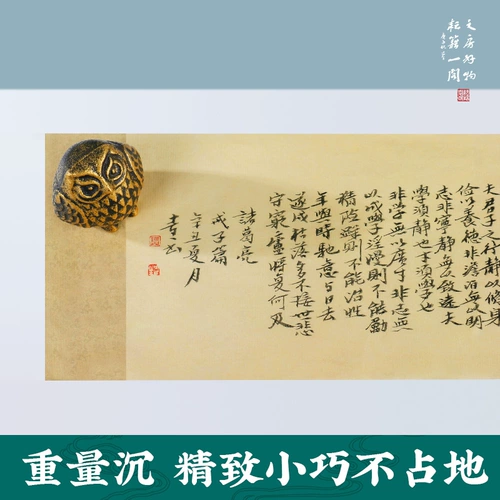 文房好物
耘籍一閒
夫君子之行静以修身
儉以養德非澹泊無以明
志非寧静無以致遠夫
學須静也才須學也
非學無以廣才非志無
以成學淫漫則不能勵
精險躁則不能治性
年與時馳意与日去
遂成枯落多不接世悲
守窮廬將復何及
諸葛亮
戒子篇
辛丑夏月
重量沉 精致小巧不占地